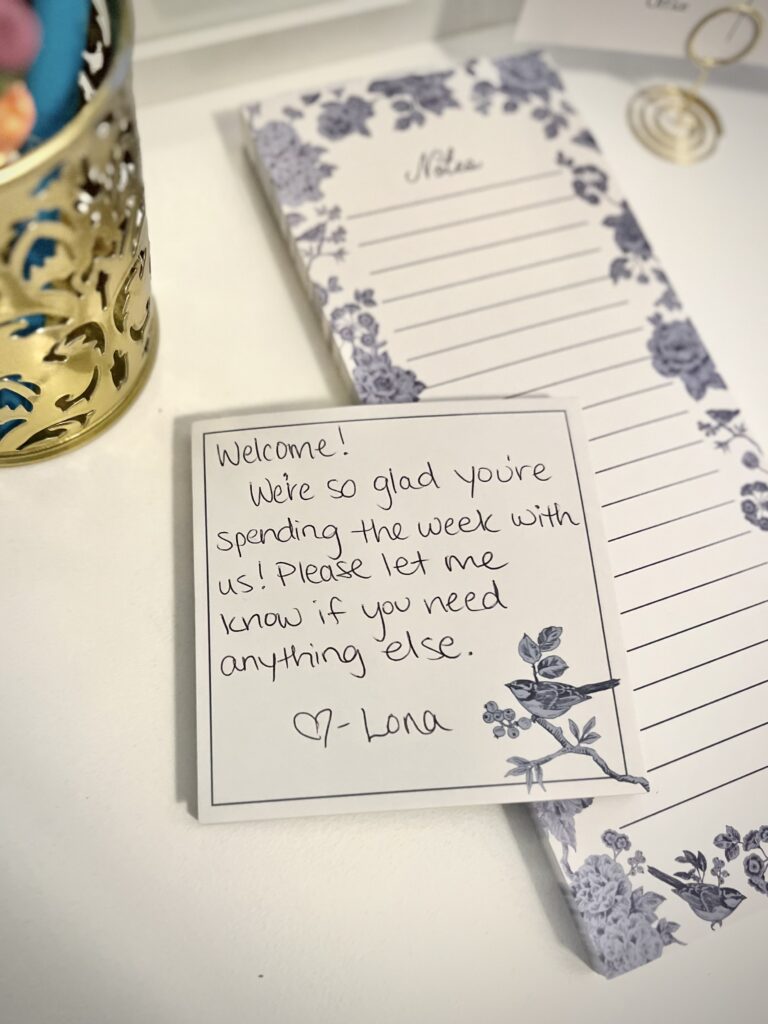 Office
Notes
Welcome!
We're so glad you're
spending the week with
us! Please let me
know if you need
anything else.
♡-Lona